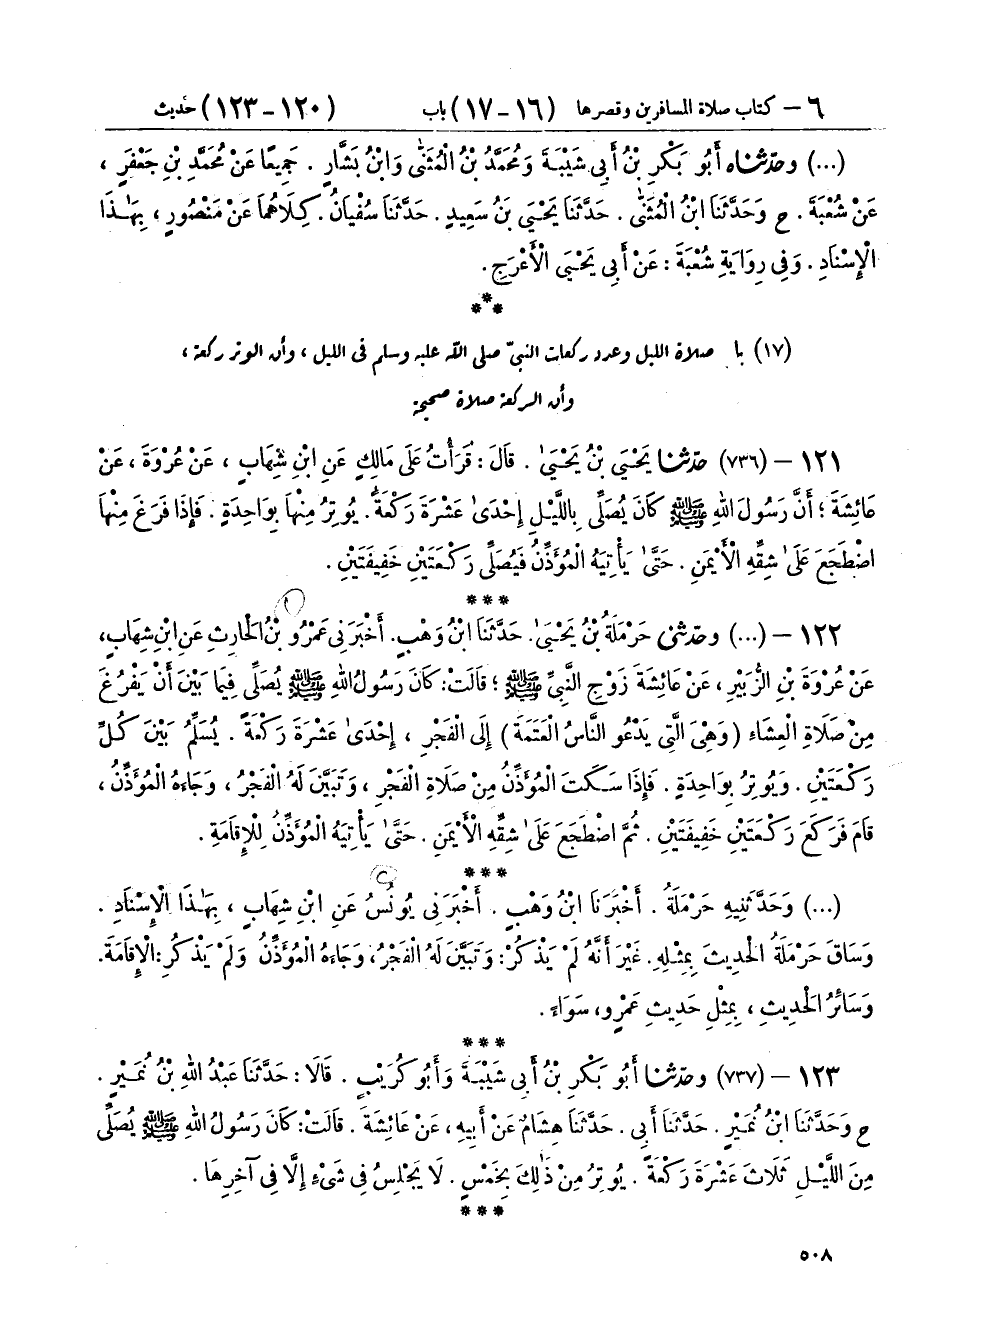 ٦ – كتاب صلاة المسافرين وقصرها (١٦ – ١٧) باب (١٢٠ – ١٢٣) حديث
(...) وحدّثناه أَبُو بَكْرِ بْنُ أَبِي شَيْبَةَ وَمُحَمَّدُ بْنُ الْمُثَنَّىٰ وَابْنُ بَشَّارٍ . جَمِيعًا عَنْ مُحَمَّدِ بْنِ جَعْفَرٍ ،
عَنْ شُعْبَةَ . ح وَحَدَّثَنَا ابْنُ الْمُثَنَّىٰ . حَدَّثَنَا يَحْيَى بْنُ سَعِيدٍ . حَدَّثَنَا سُفْيَانُ . كِلَاهُمَا عَنْ مَنْصُورٍ ، بِهَٰذَا
الْإِسْنَادِ . وَفِي رِوَايَةِ شُعْبَةَ : عَنْ أَبِي يَحْيَى الْأَعْرَجِ .
***
(١٧) باب صلاة الليل وعدد ركعات النبيّ صلى الله عليه وسلم فى الليل ، وأن الوتر ركعة ،
وأن الركعة صلاة صحيحة
١٢١ – (٧٣٦) حدّثنا يَحْيَى بْنُ يَحْيَىٰ . قَالَ : قَرَأْتُ عَلَى مَالِكٍ عَنِ ابْنِ شِهَابٍ ، عَنْ عُرْوَةَ ، عَنْ
عَائِشَةَ ؛ أَنَّ رَسُولَ اللهِ ﷺ كَانَ يُصَلِّي بِاللَّيْلِ إِحْدَىٰ عَشْرَةَ رَكْعَةً . يُوتِرُ مِنْهَا بِوَاحِدَةٍ . فَإِذَا فَرَغَ مِنْهَا
اضْطَجَعَ عَلَىٰ شِقِّهِ الْأَيْمَنِ . حَتَّىٰ يَأْتِيَهُ الْمُؤَذِّنُ فَيُصَلِّي رَكْعَتَيْنِ خَفِيفَتَيْنِ .
***
١٢٢ – (...) وحدّثنى حَرْمَلَةُ بْنُ يَحْيَىٰ . حَدَّثَنَا ابْنُ وَهْبٍ . أَخْبَرَنِي عَمْرُو بْنُ الْحَارِثِ عَنِ ابْنِ شِهَابٍ ،
عَنْ عُرْوَةَ بْنِ الزُّبَيْرِ ، عَنْ عَائِشَةَ زَوْجِ النَّبِيِّ ﷺ ؛ قَالَتْ : كَانَ رَسُولُ اللهِ ﷺ يُصَلِّي فِيمَا بَيْنَ أَنْ يَفْرُغَ
مِنْ صَلَاةِ الْعِشَاءِ ( وَهِيَ الَّتِي يَدْعُو النَّاسُ الْعَتَمَةَ ) إِلَى الْفَجْرِ ، إِحْدَىٰ عَشْرَةَ رَكْعَةً . يُسَلِّمُ بَيْنَ كُلِّ
رَكْعَتَيْنِ . وَيُوتِرُ بِوَاحِدَةٍ . فَإِذَا سَكَتَ الْمُؤَذِّنُ مِنْ صَلَاةِ الْفَجْرِ ، وَتَبَيَّنَ لَهُ الْفَجْرُ ، وَجَاءَهُ الْمُؤَذِّنُ ،
قَامَ فَرَكَعَ رَكْعَتَيْنِ خَفِيفَتَيْنِ . ثُمَّ اضْطَجَعَ عَلَىٰ شِقِّهِ الْأَيْمَنِ . حَتَّىٰ يَأْتِيَهُ الْمُؤَذِّنُ لِلْإِقَامَةِ .
***
(...) وَحَدَّثَنِيهِ حَرْمَلَةُ . أَخْبَرَنَا ابْنُ وَهْبٍ . أَخْبَرَنِي يُونُسُ عَنِ ابْنِ شِهَابٍ ، بِهَٰذَا الْإِسْنَادِ .
وَسَاقَ حَرْمَلَةُ الْحَدِيثَ بِمِثْلِهِ . غَيْرَ أَنَّهُ لَمْ يَذْكُرْ : وَتَبَيَّنَ لَهُ الْفَجْرُ ، وَجَاءَهُ الْمُؤَذِّنُ وَلَمْ يَذْكُرِ : الْإِقَامَةَ .
وَسَائِرُ الْحَدِيثِ ، بِمِثْلِ حَدِيثِ عَمْرٍو ، سَوَاءً .
***
١٢٣ – (٧٣٧) وحدّثنا أَبُو بَكْرِ بْنُ أَبِي شَيْبَةَ وَأَبُو كُرَيْبٍ . قَالَا : حَدَّثَنَا عَبْدُ اللهِ بْنُ نُمَيْرٍ .
ح وَحَدَّثَنَا ابْنُ نُمَيْرٍ . حَدَّثَنَا أَبِي . حَدَّثَنَا هِشَامٌ عَنْ أَبِيهِ ، عَنْ عَائِشَةَ . قَالَتْ : كَانَ رَسُولُ اللهِ ﷺ يُصَلِّي
مِنَ اللَّيْلِ ثَلَاثَ عَشْرَةَ رَكْعَةً . يُوتِرُ مِنْ ذَٰلِكَ بِخَمْسٍ . لَا يَجْلِسُ فِي شَيْءٍ إِلَّا فِي آخِرِهَا .
***
٥٠٨